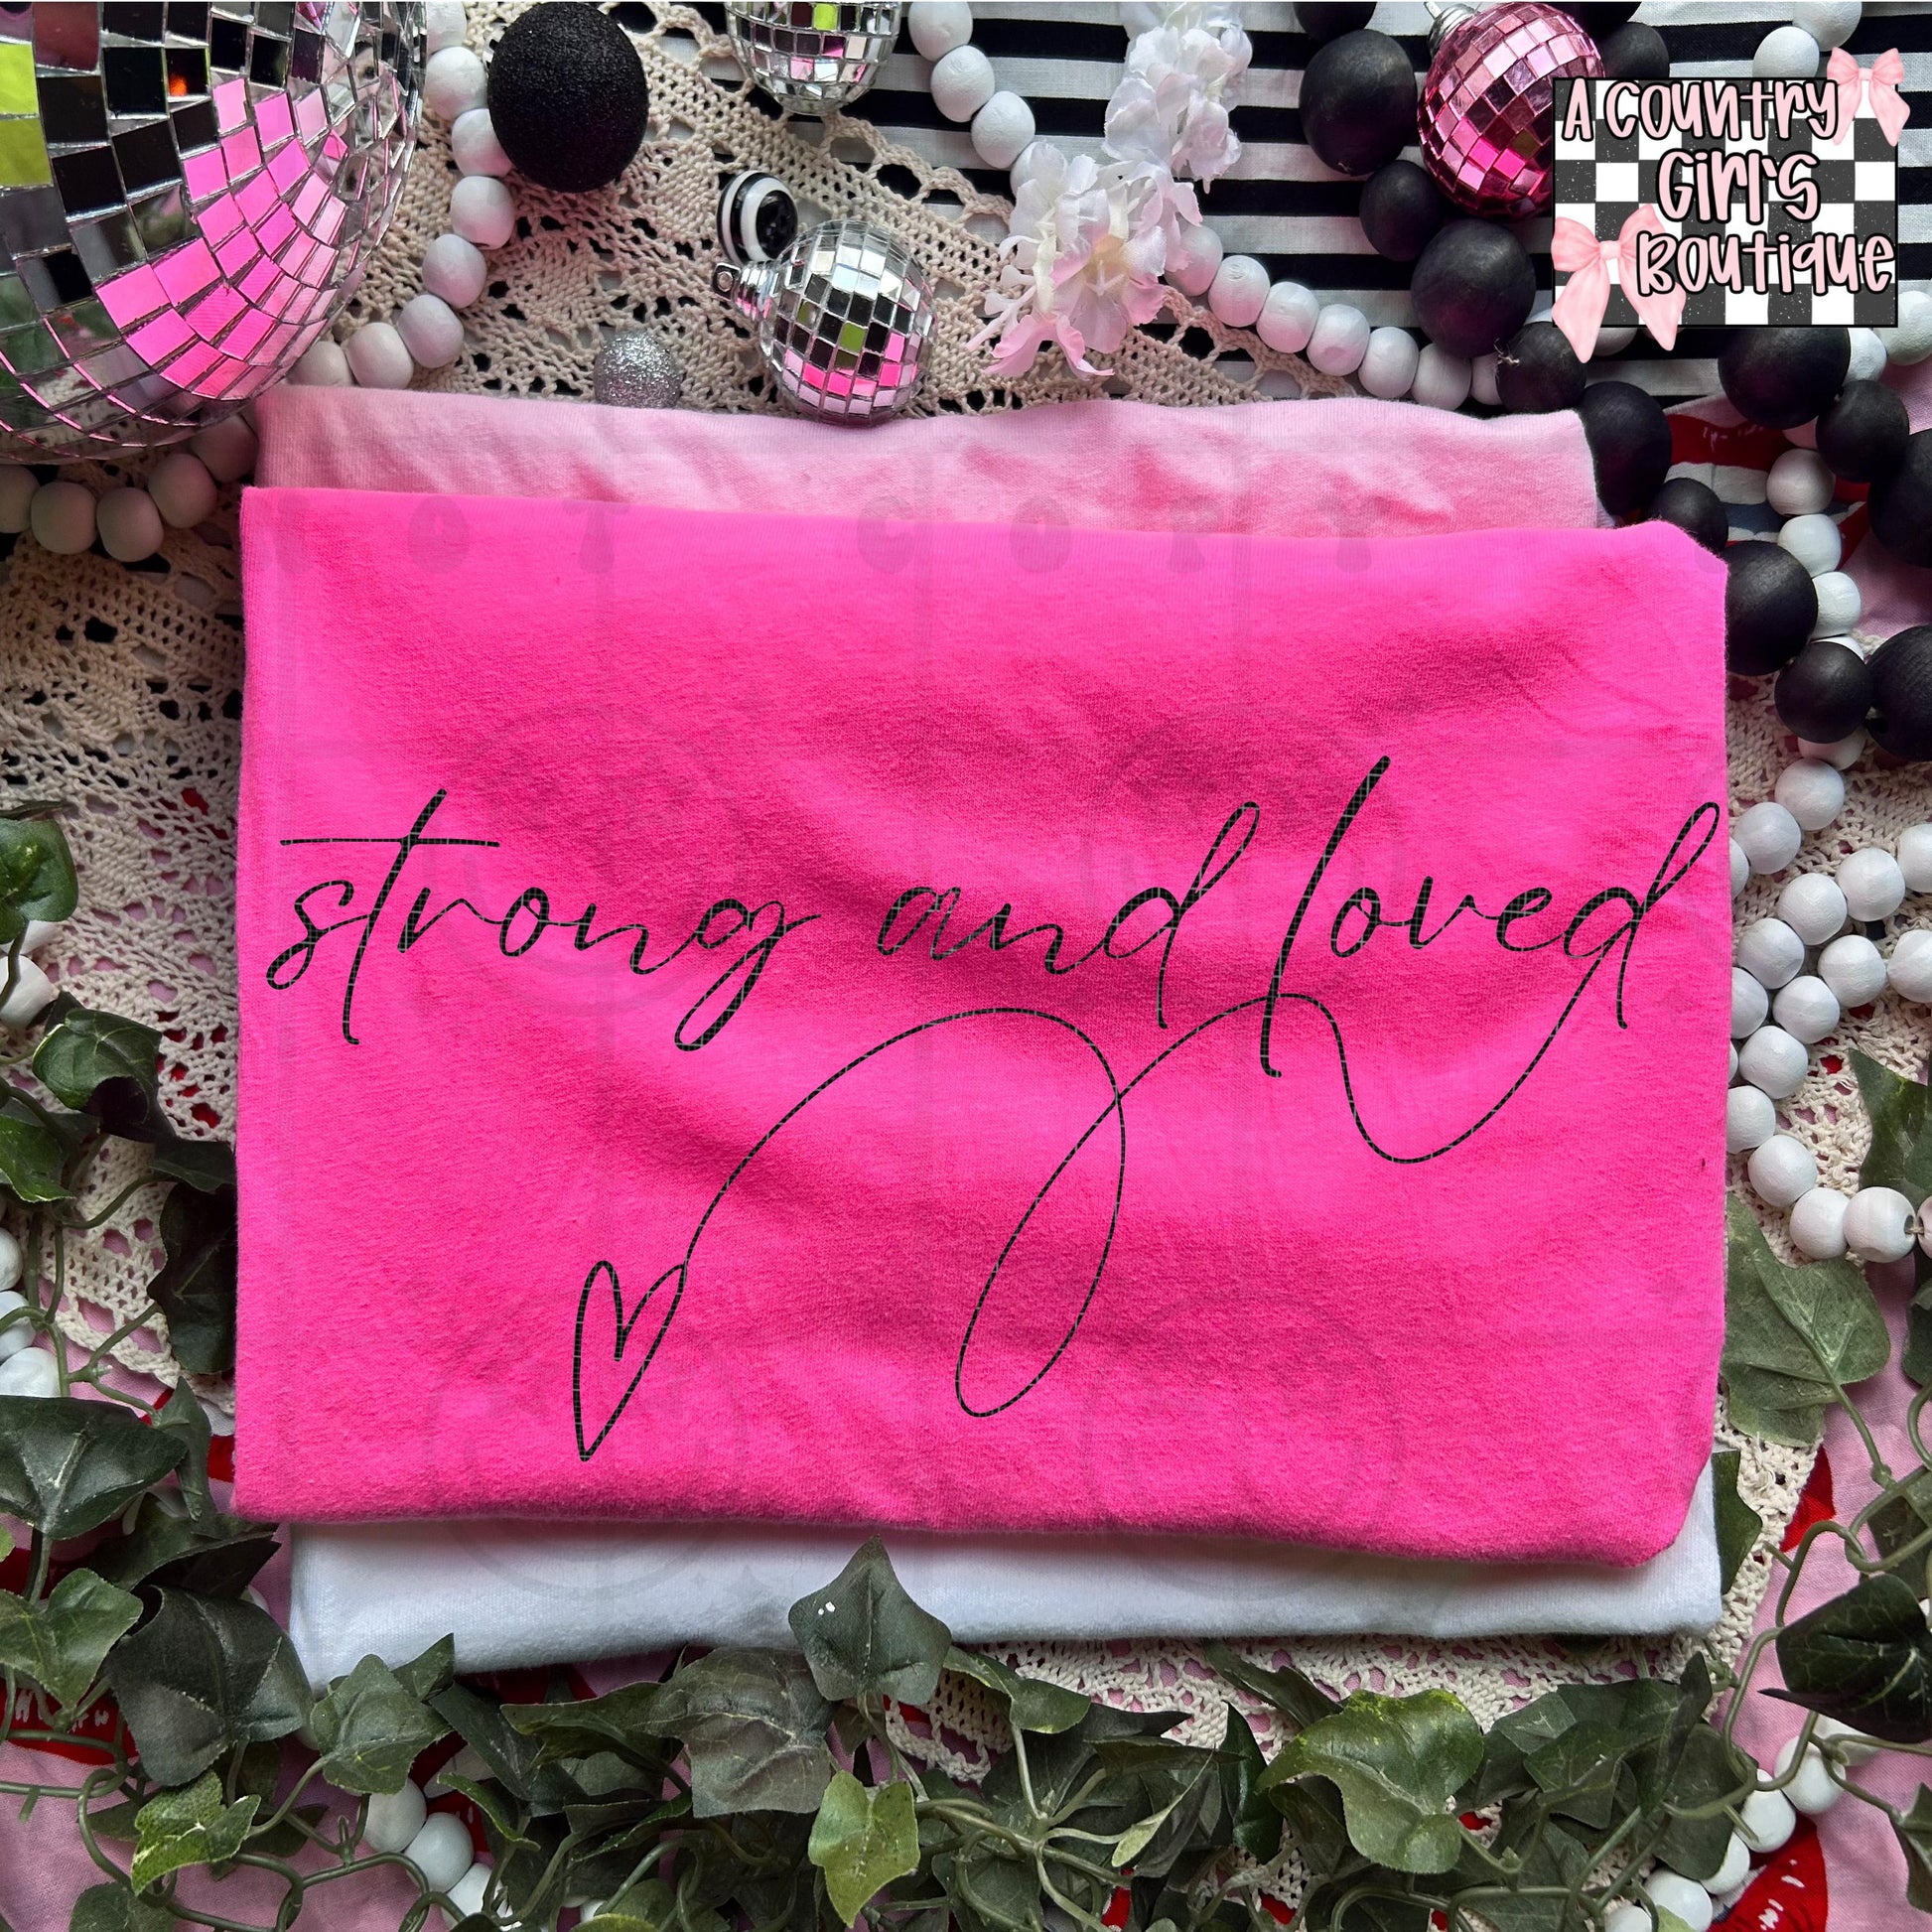 A Country
Girl's
Boutique
OT COPY
strong and loved